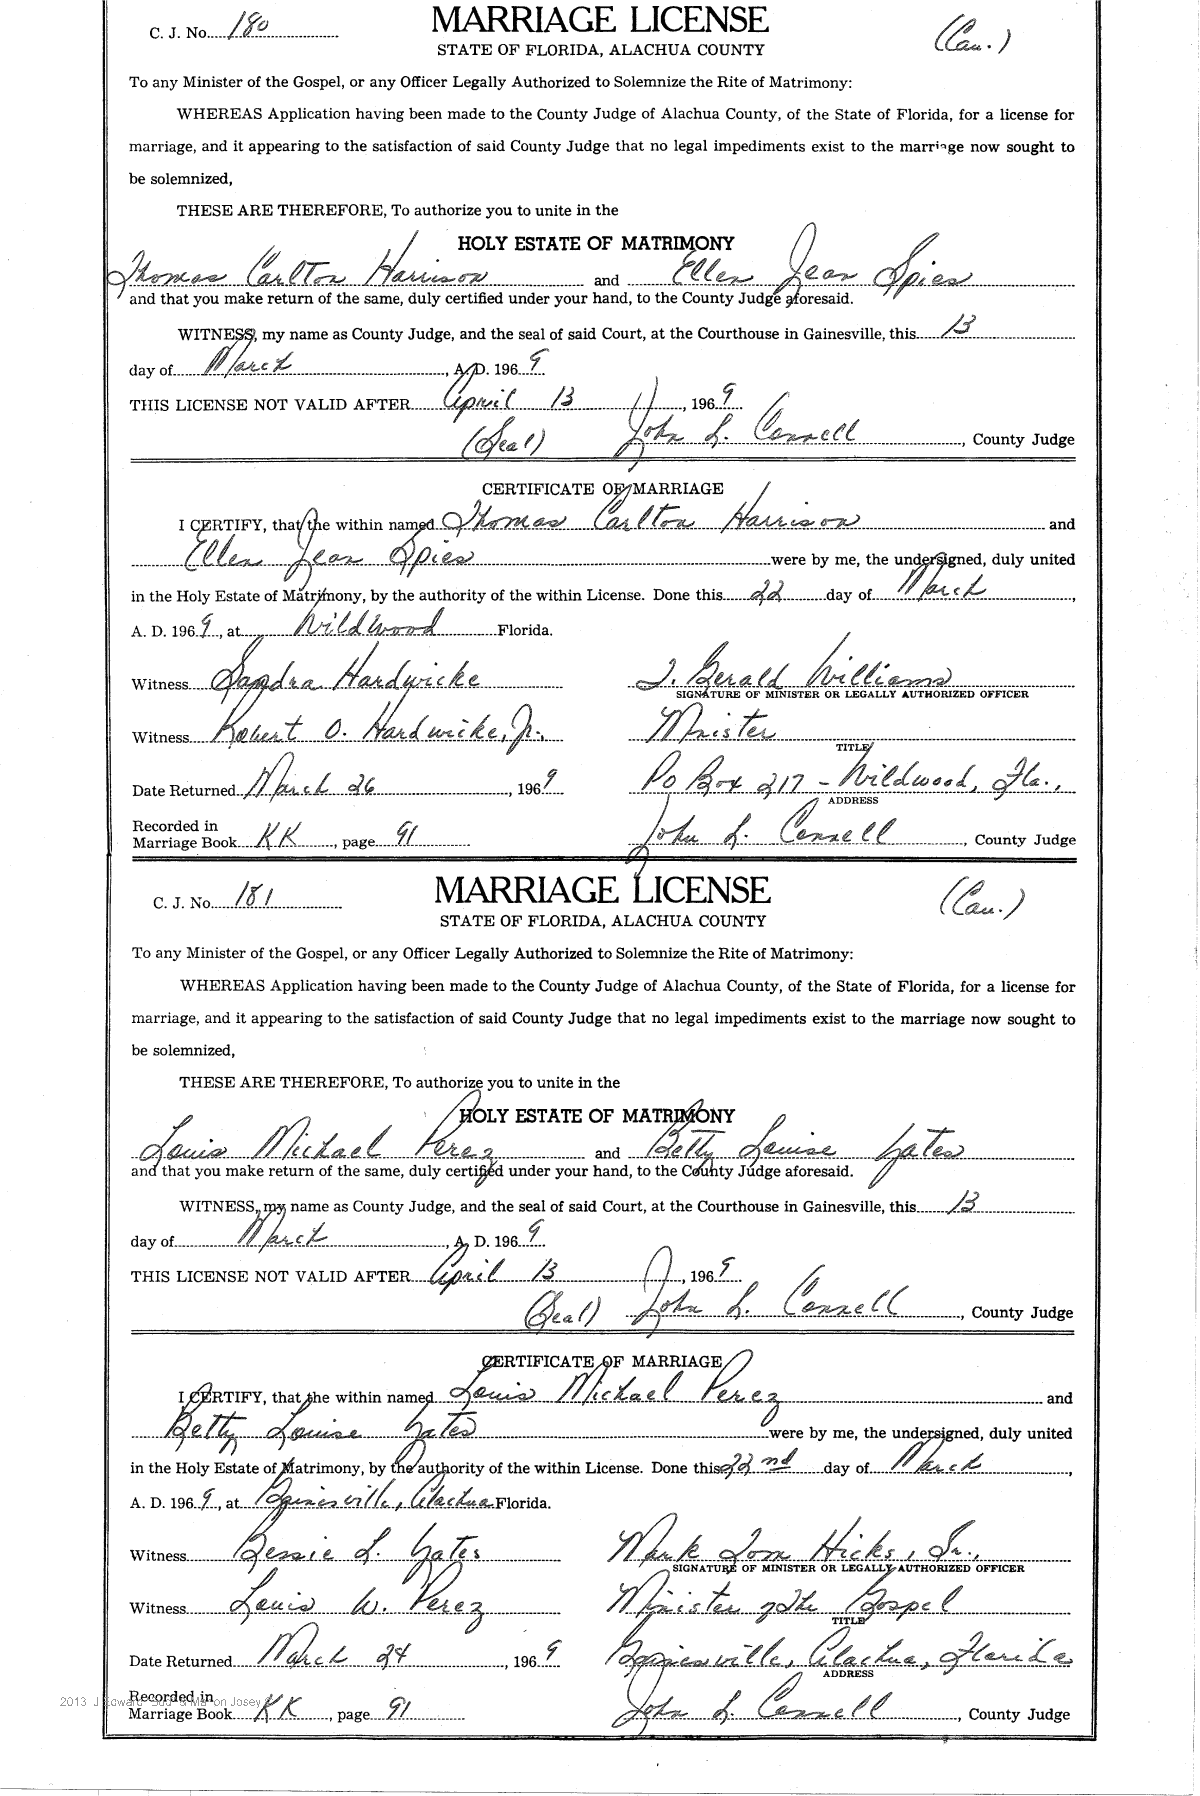 C. J. No. 180
MARRIAGE LICENSE
(Cau.)
STATE OF FLORIDA, ALACHUA COUNTY
To any Minister of the Gospel, or any Officer Legally Authorized to Solemnize the Rite of Matrimony:
WHEREAS Application having been made to the County Judge of Alachua County, of the State of Florida, for a license for
marriage, and it appearing to the satisfaction of said County Judge that no legal impediments exist to the marriage now sought to
be solemnized,
THESE ARE THEREFORE, To authorize you to unite in the
HOLY ESTATE OF MATRIMONY
Thomas Carlton Harrison and Ellen Jean Spies
and that you make return of the same, duly certified under your hand, to the County Judge aforesaid.
WITNESS, my name as County Judge, and the seal of said Court, at the Courthouse in Gainesville, this 13
day of March, A. D. 1969
THIS LICENSE NOT VALID AFTER April 13, 1969
(Seal) John L. Connell, County Judge
CERTIFICATE OF MARRIAGE
I CERTIFY, that the within named Thomas Carlton Harrison and
Ellen Jean Spies were by me, the undersigned, duly united
in the Holy Estate of Matrimony, by the authority of the within License. Done this 22 day of March,
A. D. 1969, at Wildwood Florida.
Witness Sandra Hardwicke J. Gerald Williams
SIGNATURE OF MINISTER OR LEGALLY AUTHORIZED OFFICER
Witness Robert O. Hardwicke, Jr., Minister
TITLE
Date Returned March 26, 1969 PO Box 217 - Wildwood, Fla.,
ADDRESS
Recorded in
Marriage Book KK, page 91 John L. Connell, County Judge
C. J. No. 181
MARRIAGE LICENSE
(Cau.)
STATE OF FLORIDA, ALACHUA COUNTY
To any Minister of the Gospel, or any Officer Legally Authorized to Solemnize the Rite of Matrimony:
WHEREAS Application having been made to the County Judge of Alachua County, of the State of Florida, for a license for
marriage, and it appearing to the satisfaction of said County Judge that no legal impediments exist to the marriage now sought to
be solemnized,
THESE ARE THEREFORE, To authorize you to unite in the
HOLY ESTATE OF MATRIMONY
Louis Michael Perez and Betty Louise Yates
and that you make return of the same, duly certified under your hand, to the County Judge aforesaid.
WITNESS, my name as County Judge, and the seal of said Court, at the Courthouse in Gainesville, this 13
day of March, A. D. 1969
THIS LICENSE NOT VALID AFTER April 13, 1969
(Seal) John L. Connell, County Judge
CERTIFICATE OF MARRIAGE
I CERTIFY, that the within named Louis Michael Perez and
Betty Louise Yates were by me, the undersigned, duly united
in the Holy Estate of Matrimony, by the authority of the within License. Done this 22nd day of March,
A. D. 1969, at Gainesville, Alachua Florida.
Witness Bessie L. Yates Mark Tom Hicks, Sr.,
SIGNATURE OF MINISTER OR LEGALLY AUTHORIZED OFFICER
Witness Louis W. Perez Minister of the Gospel
TITLE
Date Returned March 24, 1969 Gainesville, Alachua, Florida
ADDRESS
Recorded in
Marriage Book KK, page 91 John L. Connell, County Judge
2013 J Edward
on Josey